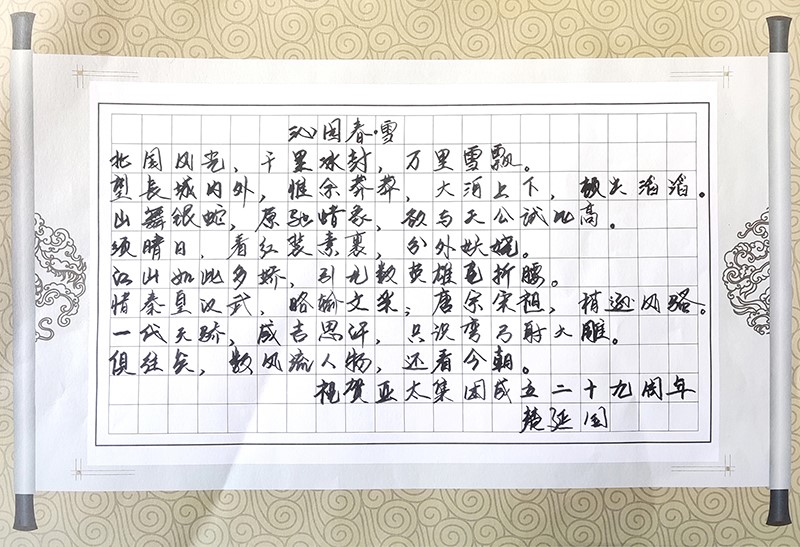 沁园春·雪
北国风光，千里冰封，万里雪飘。
望长城内外，惟余莽莽，大河上下，顿失滔滔。
山舞银蛇，原驰蜡象，欲与天公试比高。
须晴日，看红装素裹，分外妖娆。
江山如此多娇，引无数英雄竞折腰。
惜秦皇汉武，略输文采；唐宗宋祖，稍逊风骚。
一代天骄，成吉思汗，只识弯弓射大雕。
俱往矣，数风流人物，还看今朝。
祝贺亚太集团成立二十九周年
楚延国